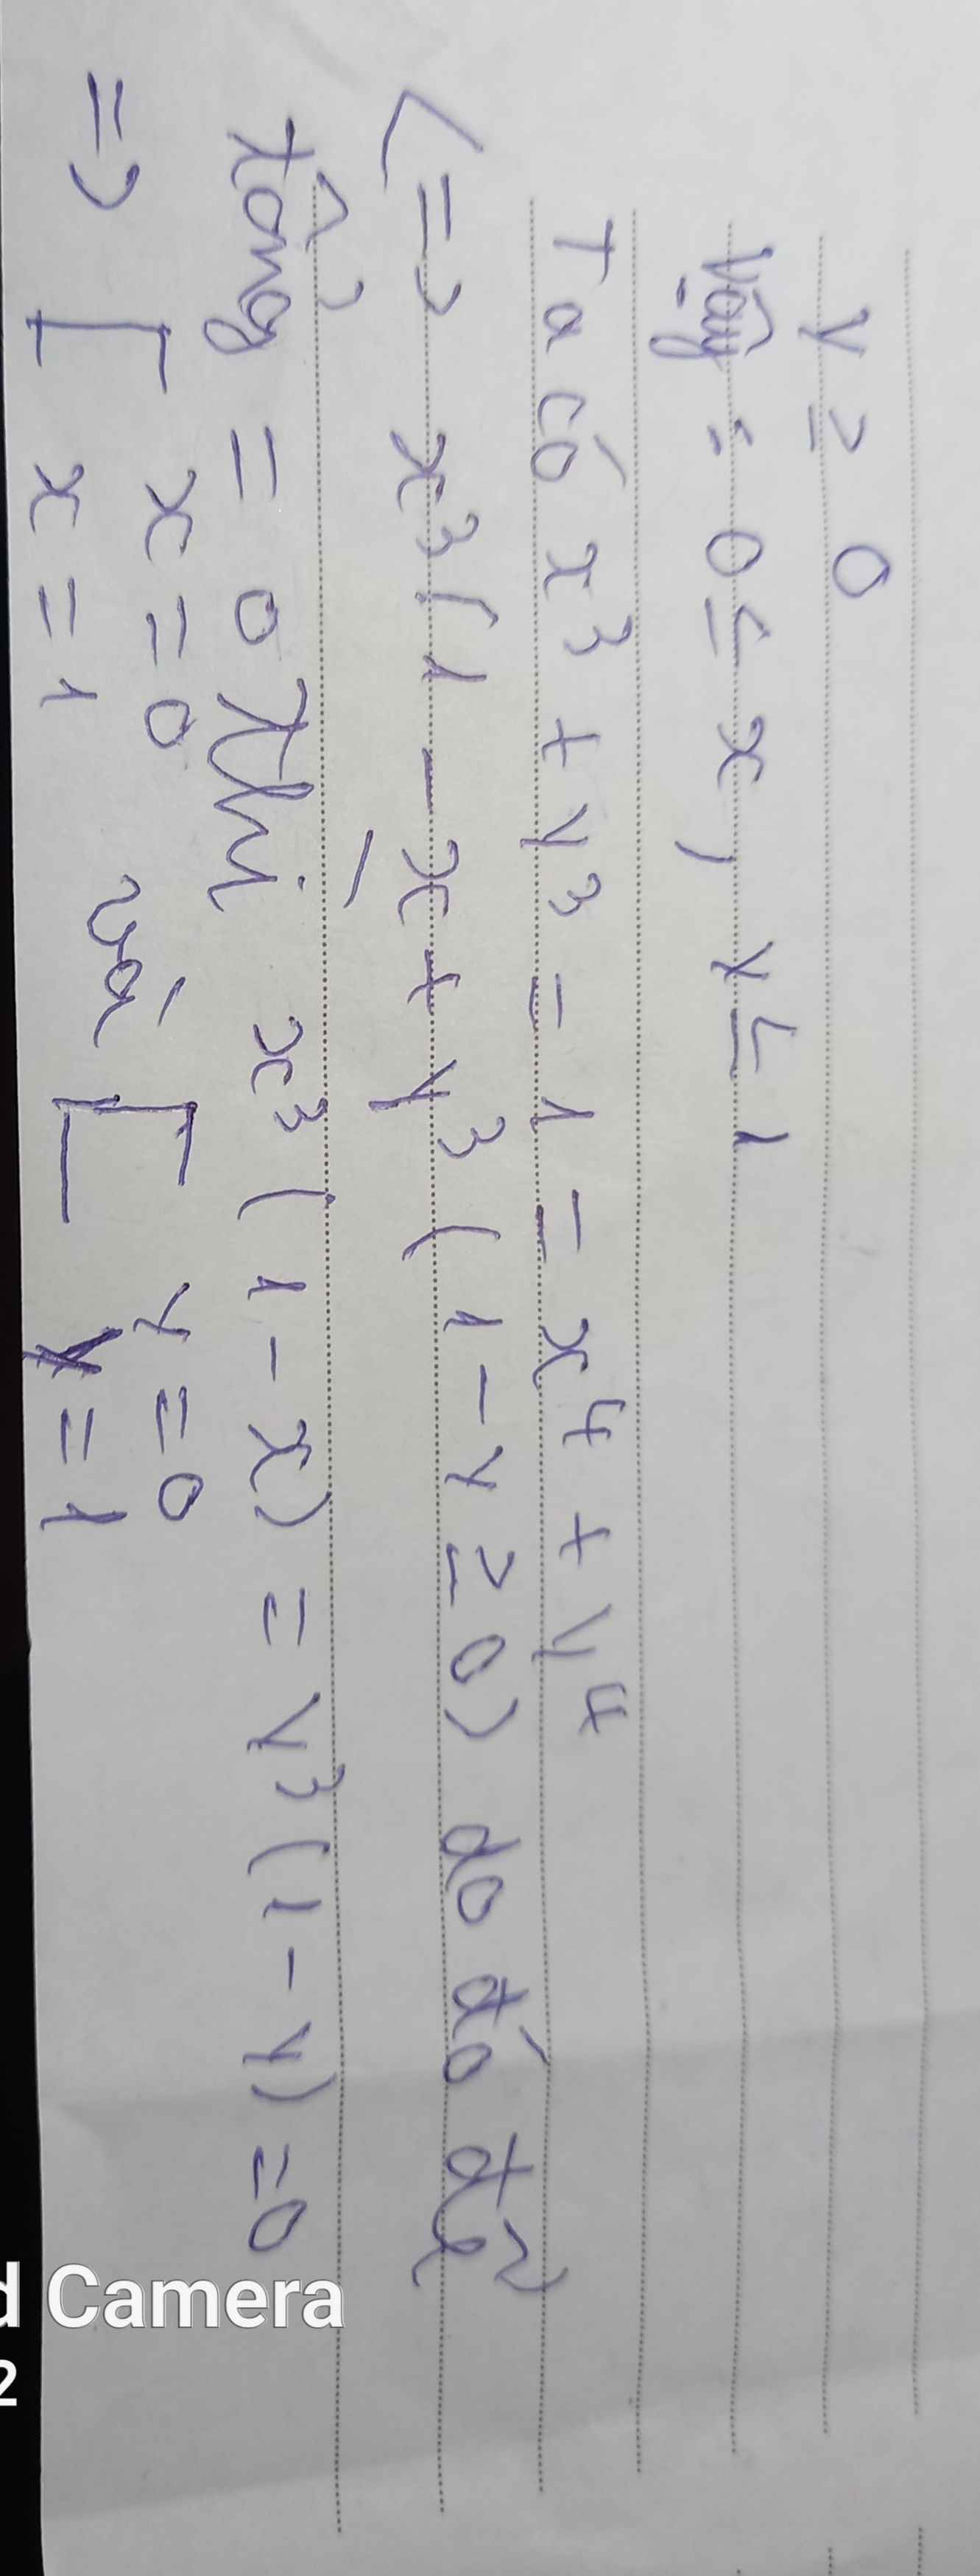 y ≥ 0
Vậy : 0 ≤ x, y ≤ 1
Ta có x³ + y³ = 1 = x⁴ + y⁴
<=> x³(1 - x + y³(1 - y ≥ 0) do đó để
tổng = 0 thì x³(1 - x) = y³(1 - y) = 0
=> [ x = 0 và [ y = 0
x = 1 y = 1
Camera
2